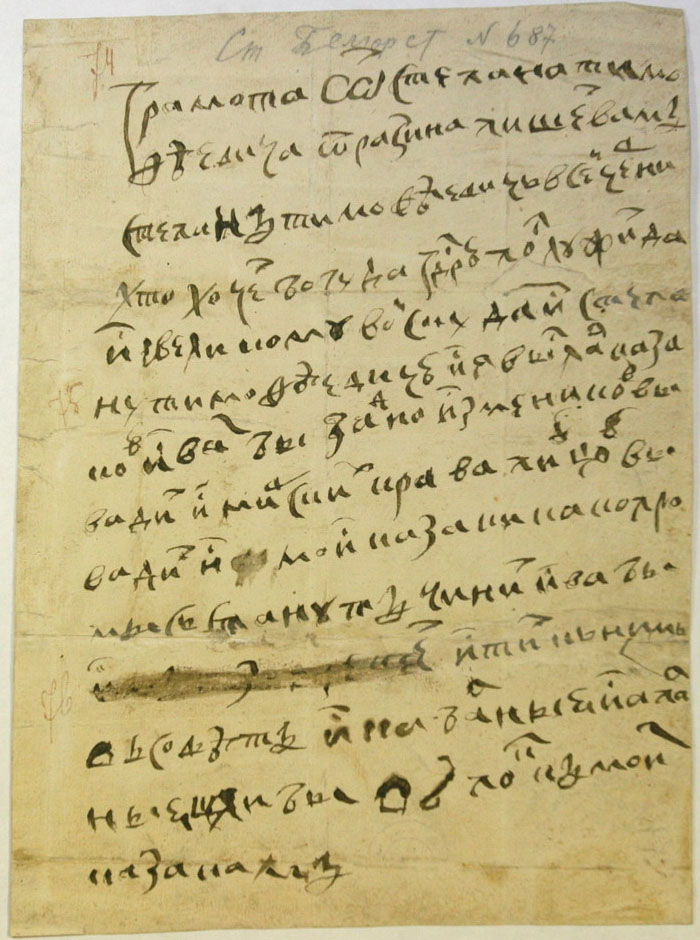 Ст Безгласн № 687
74
Грамота ѿ Степана тимо
ѳѣевича ѿ разина пишет вамъ
Степанъ тимоѳѣевичь всеи черни
хто хочет богу да гдрю послужити да
и великому воску да и Степа
ну тимоѳѣевичю и я выслал каза
75
ков и вам бы заодно изменников вы
вадить и мирских кравапивцов вы
вадить и мои казаки како про
мысь станутъ чинить и вам бы
76
итить к ним
в советъ и кабальныя и апал
ныя шли бы в полкъ к моим
казакамъ